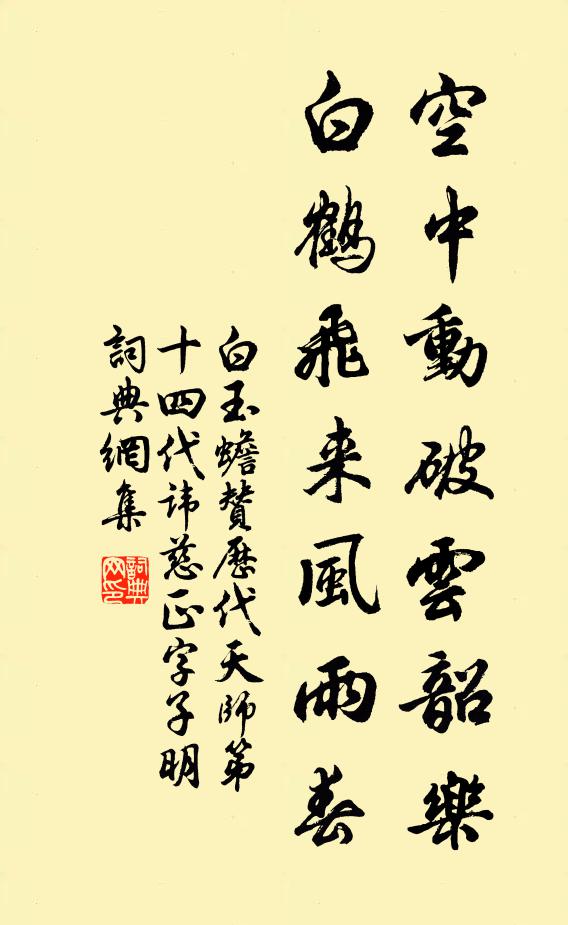 空中動破雲韶樂
白鶴飛来風雨春
白玉蟾贊歷代天師第
十四代諱慈正字子明
詞典網集
詞典
网印